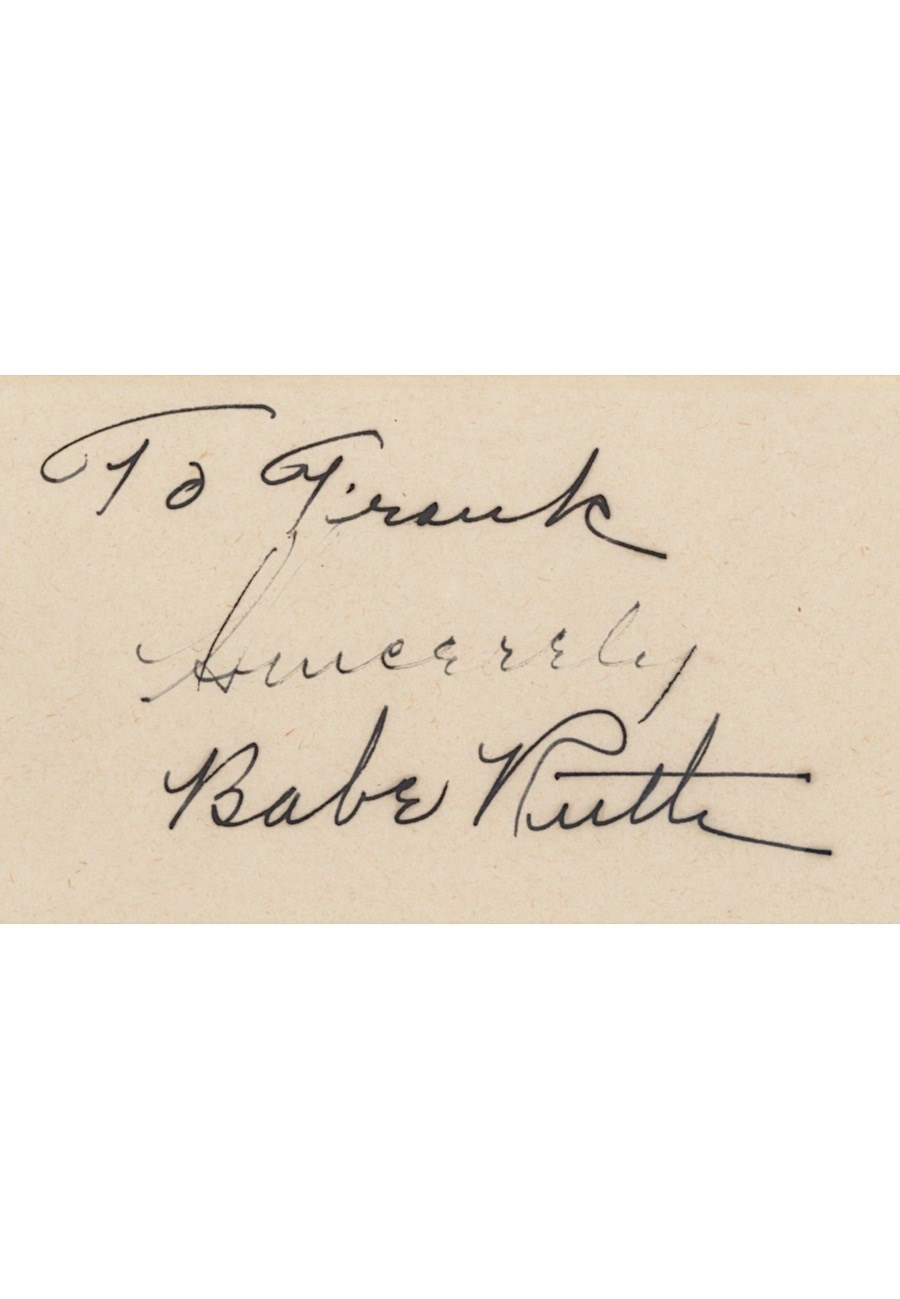 To Frank
Sincerely
Babe Ruth